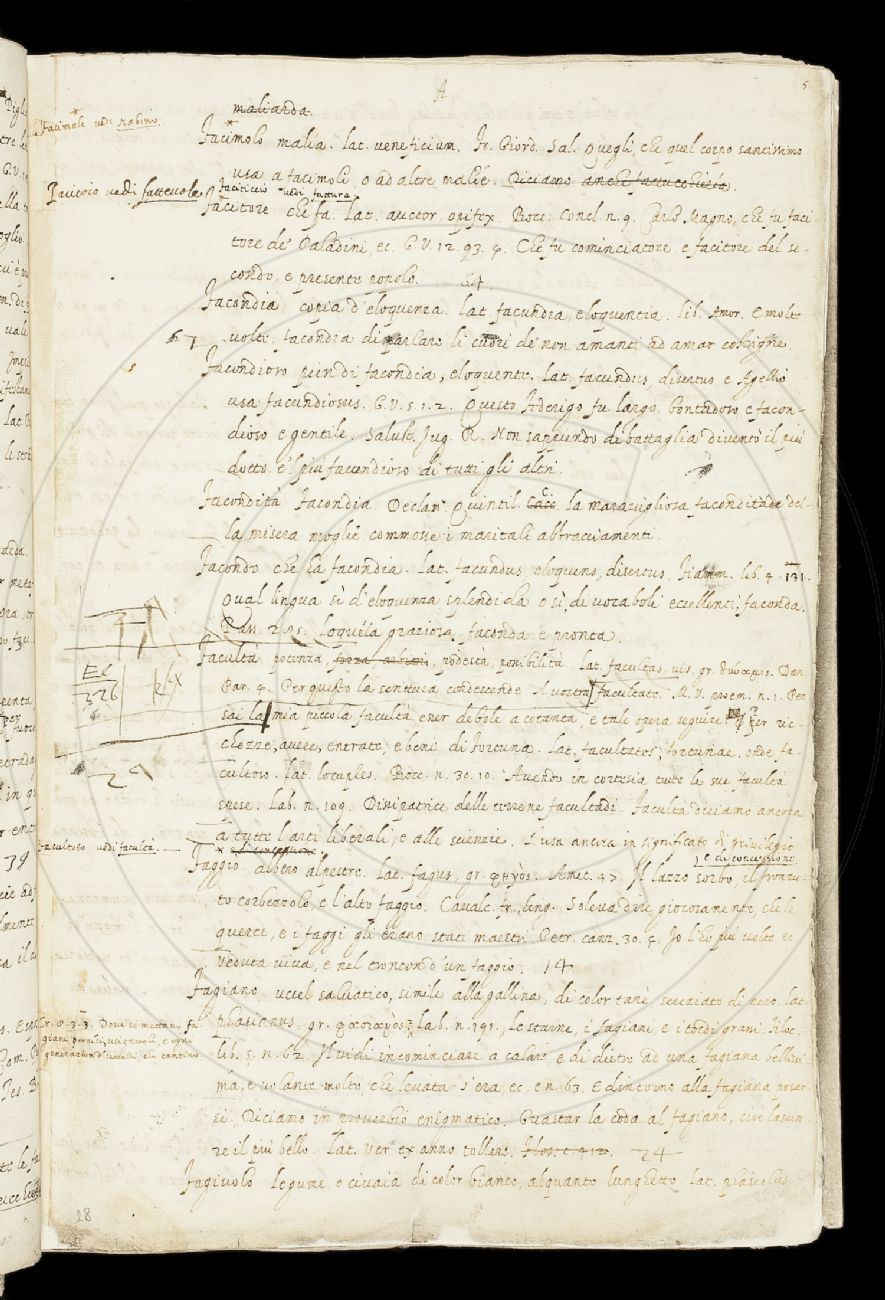 A
5
maliarda.
Facimole vedi rabino.
Facimolo malìa. lat. veneficium. Fr. Giord. Sal. Quegli, che quel corpo santissimo
usa a facimoli, o ad altre malíe. Diciamo anche fattucchierìa.
Facitoio vedi fattevole.
Faciticcio vedi fattura.
Facitore che fa. Lat. auctor, opifex. Bocc. Concl. n. 9. Carlo Magno, che fu faci-
tore de Paladini, ec. G. V. 12. 93. 4. Che fu cominciatore, e facitore del se-
condo, e presente popolo. 64
Facondia copia d'eloquenza. lat. facundia, eloquentia. lib. Amor. E molte
volte, facondia di parlare li cuori de non amanti ad amar costrigne
Facondioso pien di facondia, eloquente. Lat. facundus, disertus e Agellio
usa facundiosus. G. V. 5. 1. 2. Questo Aderigo fu largo, bontadoso e facon-
dioso e gentile. Salust. Jug. R. Non sappiendo di battaglia diventò il più
dotto, e'l più faccendioso di tutti gli altri.
Facondità Facondia. Declam. Quintil. C. La maravigliosa facondità de del-
la misera moglie, commosse i maritali abbracciamenti.
Facondo che ha facondia. Lat. facundus eloquens, disertus. Fiamm. lib. 4. 131.
Qual lingua sì d'eloquenza splendida o sì, di vocaboli eccellenti, faconda.
Pass. 295. Loquela graziosa, faconda e pronta.
Facultà potenza, forza, arbitri, podestà, possibilità. Lat. facultas, vis. gr. δύναμις. Dan.
Par. 4. Per questo la scrittura condescende A vostra facultate. M. V. proem. n. 1. Pen
sai la mia piccola facultà esser debole a cotanta, e tale opera seguire Per ric-
chezze, avere, entrate, e beni di fortuna. Lat. facultates, fortunae. onde fa-
cultoso. Lat. locuples. Bocc. n. 30. 10. Avendo in cortesia tutte le sue facultà
spese. Lab. n. 109. Dissipatrice delle terrene facultadi. Facultà diciamo ancora
a tutte l'arti liberali, e alle scienzie. S'usa ancora in significato di privilegio
e di concessione
Facultoso vedi facultà.
Faggio albero alpestre. Lat. fagus, gr. φηγὸς. Amet. 47. Il lazzo sorbo, il fronzu-
to corbezzolo, e l'alto faggio. Cavalc. fr. leng. Soleva dire giocosamente, che le
querce, e i faggi gli erano stati maestri Petr. canz. 30. 4. Io l'ho più volte ec.
veduta viva, e nel troncon d'un faggio. 14
Fagiano uccel salvatico, simile alla gallina, di color tanè screziato di nero. lat.
phasianus. gr. φασιανός. Lab. n. 191. Le starne, i fagiani e i tordi grassi. Filoc.
lib. 5. n. 62. Il vidi incominciare a calare e di dietro ad una fagiana bellissi-
ma, e volante molto che levata s'era ec. e n. 63. E dintorno alla fagiana posar-
si. Diciamo in proverbio enigmatico. Guastar la coda al fagiano, cioè lascia-
re il più bello. Lat. ver ex anno tollere. 24
Cr. 10. 3. 3. Dove si mettano fa-
giani, pernici, usignuoli, e ogni
generazion d'uccelli, che cantino
Fagiuolo legume o civaia di color bianco, alquanto lunghetto. Lat. phaseolus
28